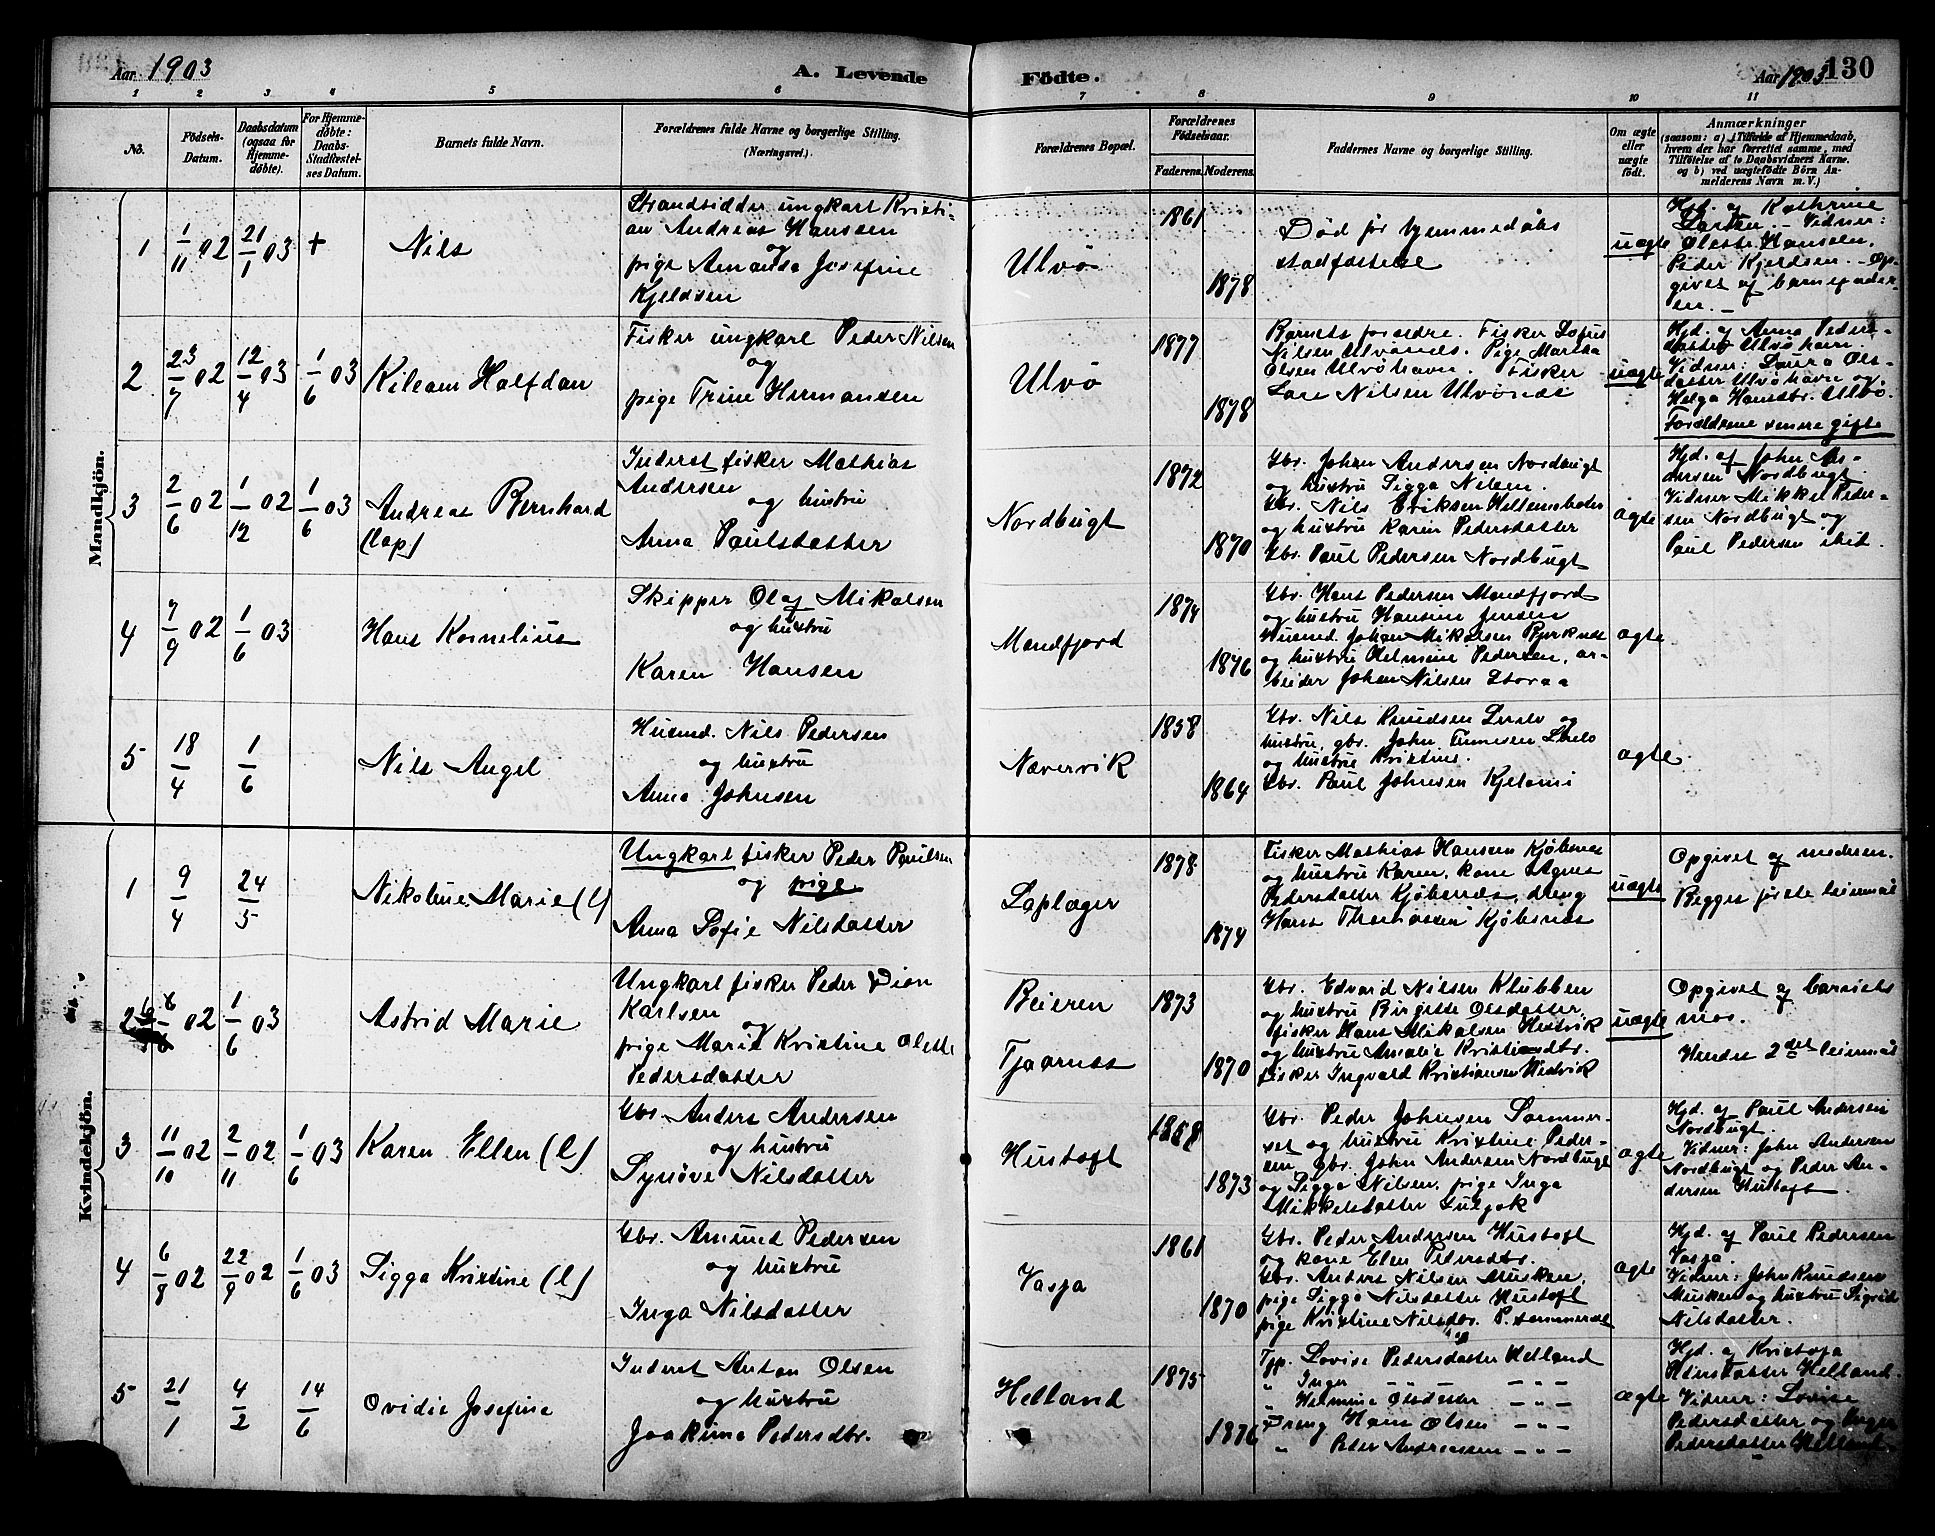 Aar 1903
A. Levende
Födte.
Aar 1903
130
1 2 3 4 5 6 7 8 9 10 11
No.
Födsels-
Datum.
Daabsdatum
(ogsaa for
Hjemme-
døbte).
For Hjemme-
døbte:
Daabs-
Stadfæstel-
ses Datum.
Barnets fulde Navn.
Forældrenes fulde Navne og borgerlige Stilling.
(Næringsvei.)
Forældrenes Bopæl.
Forældrenes
Födselsaar.
Faderens.
Moderens.
Faddernes Navne og borgerlige Stilling.
Om ægte
eller
uægte
födt.
Anmærkninger
(saasom: a) i Tilfælde af Hjemmedaab,
hvem der har forrettet samme, med
Tilföielse af to Daabsvidners Navne.
og b) ved uægtefödte Börn An-
melderens Navn m. V.)
Mandkjön.
1
1/11 02
21/1 03
+
Nils
Strandsidder ungkarl Kristi-
an Andreas Hanssen
og
pige Amanda Josefine
Kjeldsen
Ulvö
1861
1878
Död för hjemmedåbs
stadfæstelse
uægte
Hjd. af Kathrine
Larsen. Vidner:
Olette Hansen,
Peder Kjeldsen. – Op-
givet af barnefader-
en. –
2
23/7 02
12/4 03
1/6 03
Kileam Halfdan
Fisker ungkarl Peder Nilsen
og
pige Trine Hermansen
Ulvö
1877
1878
Barnets forældre. Fisker
Nilsen Ulvönes. Pige Martha
Olsen Ulvöhavn. Fisker
Lars Nilsen Ulvönes
uægte
Hjd. af Anna Peders-
datter Ulvöhavn.
Vidner: Laura Ols-
datter Ulvöhavn og
Helga Hansdtr. Ulvö.
Forældrene senere gifte
3
2/6 02
1/12 02
1/6 03
Andreas Bernhard
(lap)
Inderst fisker Mathias
Andersen
og hustru
Anna Paulsdatter
Nordbugt
1872
1870
Gbr. Johan Andersen Nordbugt
og hustru Sigga Nilsen.
Gbr. Nils Eriksen Hellemobotn
og hustru Karen Pedersdatter
Gbr. Paul Pedersen Nordbugt
ægte
Hjd. af John An-
dersen Nordbugt
Vidner Mikkel Peder-
sen Nordbugt og
Paul Pedersen ibid.
4
7/9 02
1/6 03
Hans Kornelius
Skipper Olaf Mikalsen
og hustru
Karen Hansen
Mandfjord
1874
1876
Gbr. Hans Pedersen Mandfjord
og hustru Hansine Jensen
Husmd. Johan Mikalsen Bjerknes
og hustru Helmine Pedersen, ar-
beider Johan Nilsen Storaa
ægte
5
18/4
1/6
Nils Angel
Husmd. Nils Pedersen
og hustru
Anna Johnsen
Nævervik
1858
1864
Gbr. Nils Knudsen og
hustru, gbr. John Tumesen
og hustru Kristine.
Gbr. Paul Johnsen Kjelomi
ægte
Kvindekjön.
1
9/4
24/5
Nikoline Marie (l)
Ungkarl fisker Peder Paulsen
og pige
Anna Sofie Nilsdatter
Laplæger
1878
1874
Fisker Mathias Hansen Kjöbsnes
og hustru Karen, kone Agnes
Pedersdatter Kjöbsnes, dreng
Hans Thomassen Kjöbsnes
uægte
Opgivet af moderen.
Begges förste leiermål
2
6/6 02
1/6 03
Astrid Marie
Ungkarl fisker Peder Dion
Karlsen
og
pige Marie Kristine Olette
Pedersdatter
Beieren
Tjaarnes
1873
1870
Gbr. Edvard Nilsen Klubben
og hustru Birgitte Olsdatter,
fisker Hans Mikalsen Hestvik
og hustru Amalie Kristiansdtr.
fisker Ingvald Kristiansen Hestvik
uægte
Opgivet af barnets
mor.
Hendes 2det leiermål
3
11/10 02
2/11 02
1/6 03
Karen Ellen (l)
Gbr. Anders Andersen
og hustru
Synöve Nilsdatter
Hustoft
1868
1873
Gbr. Peder Johnsen Sommer-
set og hustru Kristine Peder-
sen, gbr. John Andersen Nordbugt
og Sigga Nilsen, pige Inga
Mikkelsdatter
ægte
Hjd. af Paul Andersen
Nordbugt.
Vidner: John Andersen
Nordbugt og Peder An-
dersen Hustoft.
4
6/8 02
22/9 02
1/6 03
Sigga Kristine (l)
Gbr. Amund Pedersen
og hustru
Inga Nilsdatter
Vasja
1861
1870
Gbr. Peder Andersen Hustoft
og kone Elen Pedersdtr.
Gbr. Anders Nilsen Musken,
pige Sigga Nilsdatter Hustoft
pige Kristine Nilsdtr. P. sommerset
ægte
Hjd. af Paul Pedersen
Vasja.
Vidner: John Knudsen
Musken og hustru Sigrid
Nilsdatter.
5
21/1
4/2
14/6
Ovidie Josefine
Inderst Anton Olsen
og hustru
Joakima Pedersdtr.
Helland
1875
1876
Tjp. Lovise Pedersdatter Helland
„ Inger „ – „ –
„ Helmine Olsdatter – „ –
Dreng Hans Olsen – „ –
„ Peter Andreassen – „ –
ægte
Hjd. af Kristofa
Hansdatter Helland.
Vidner: Lovise
Pedersdatter og Inger
Pedersdatter Helland.